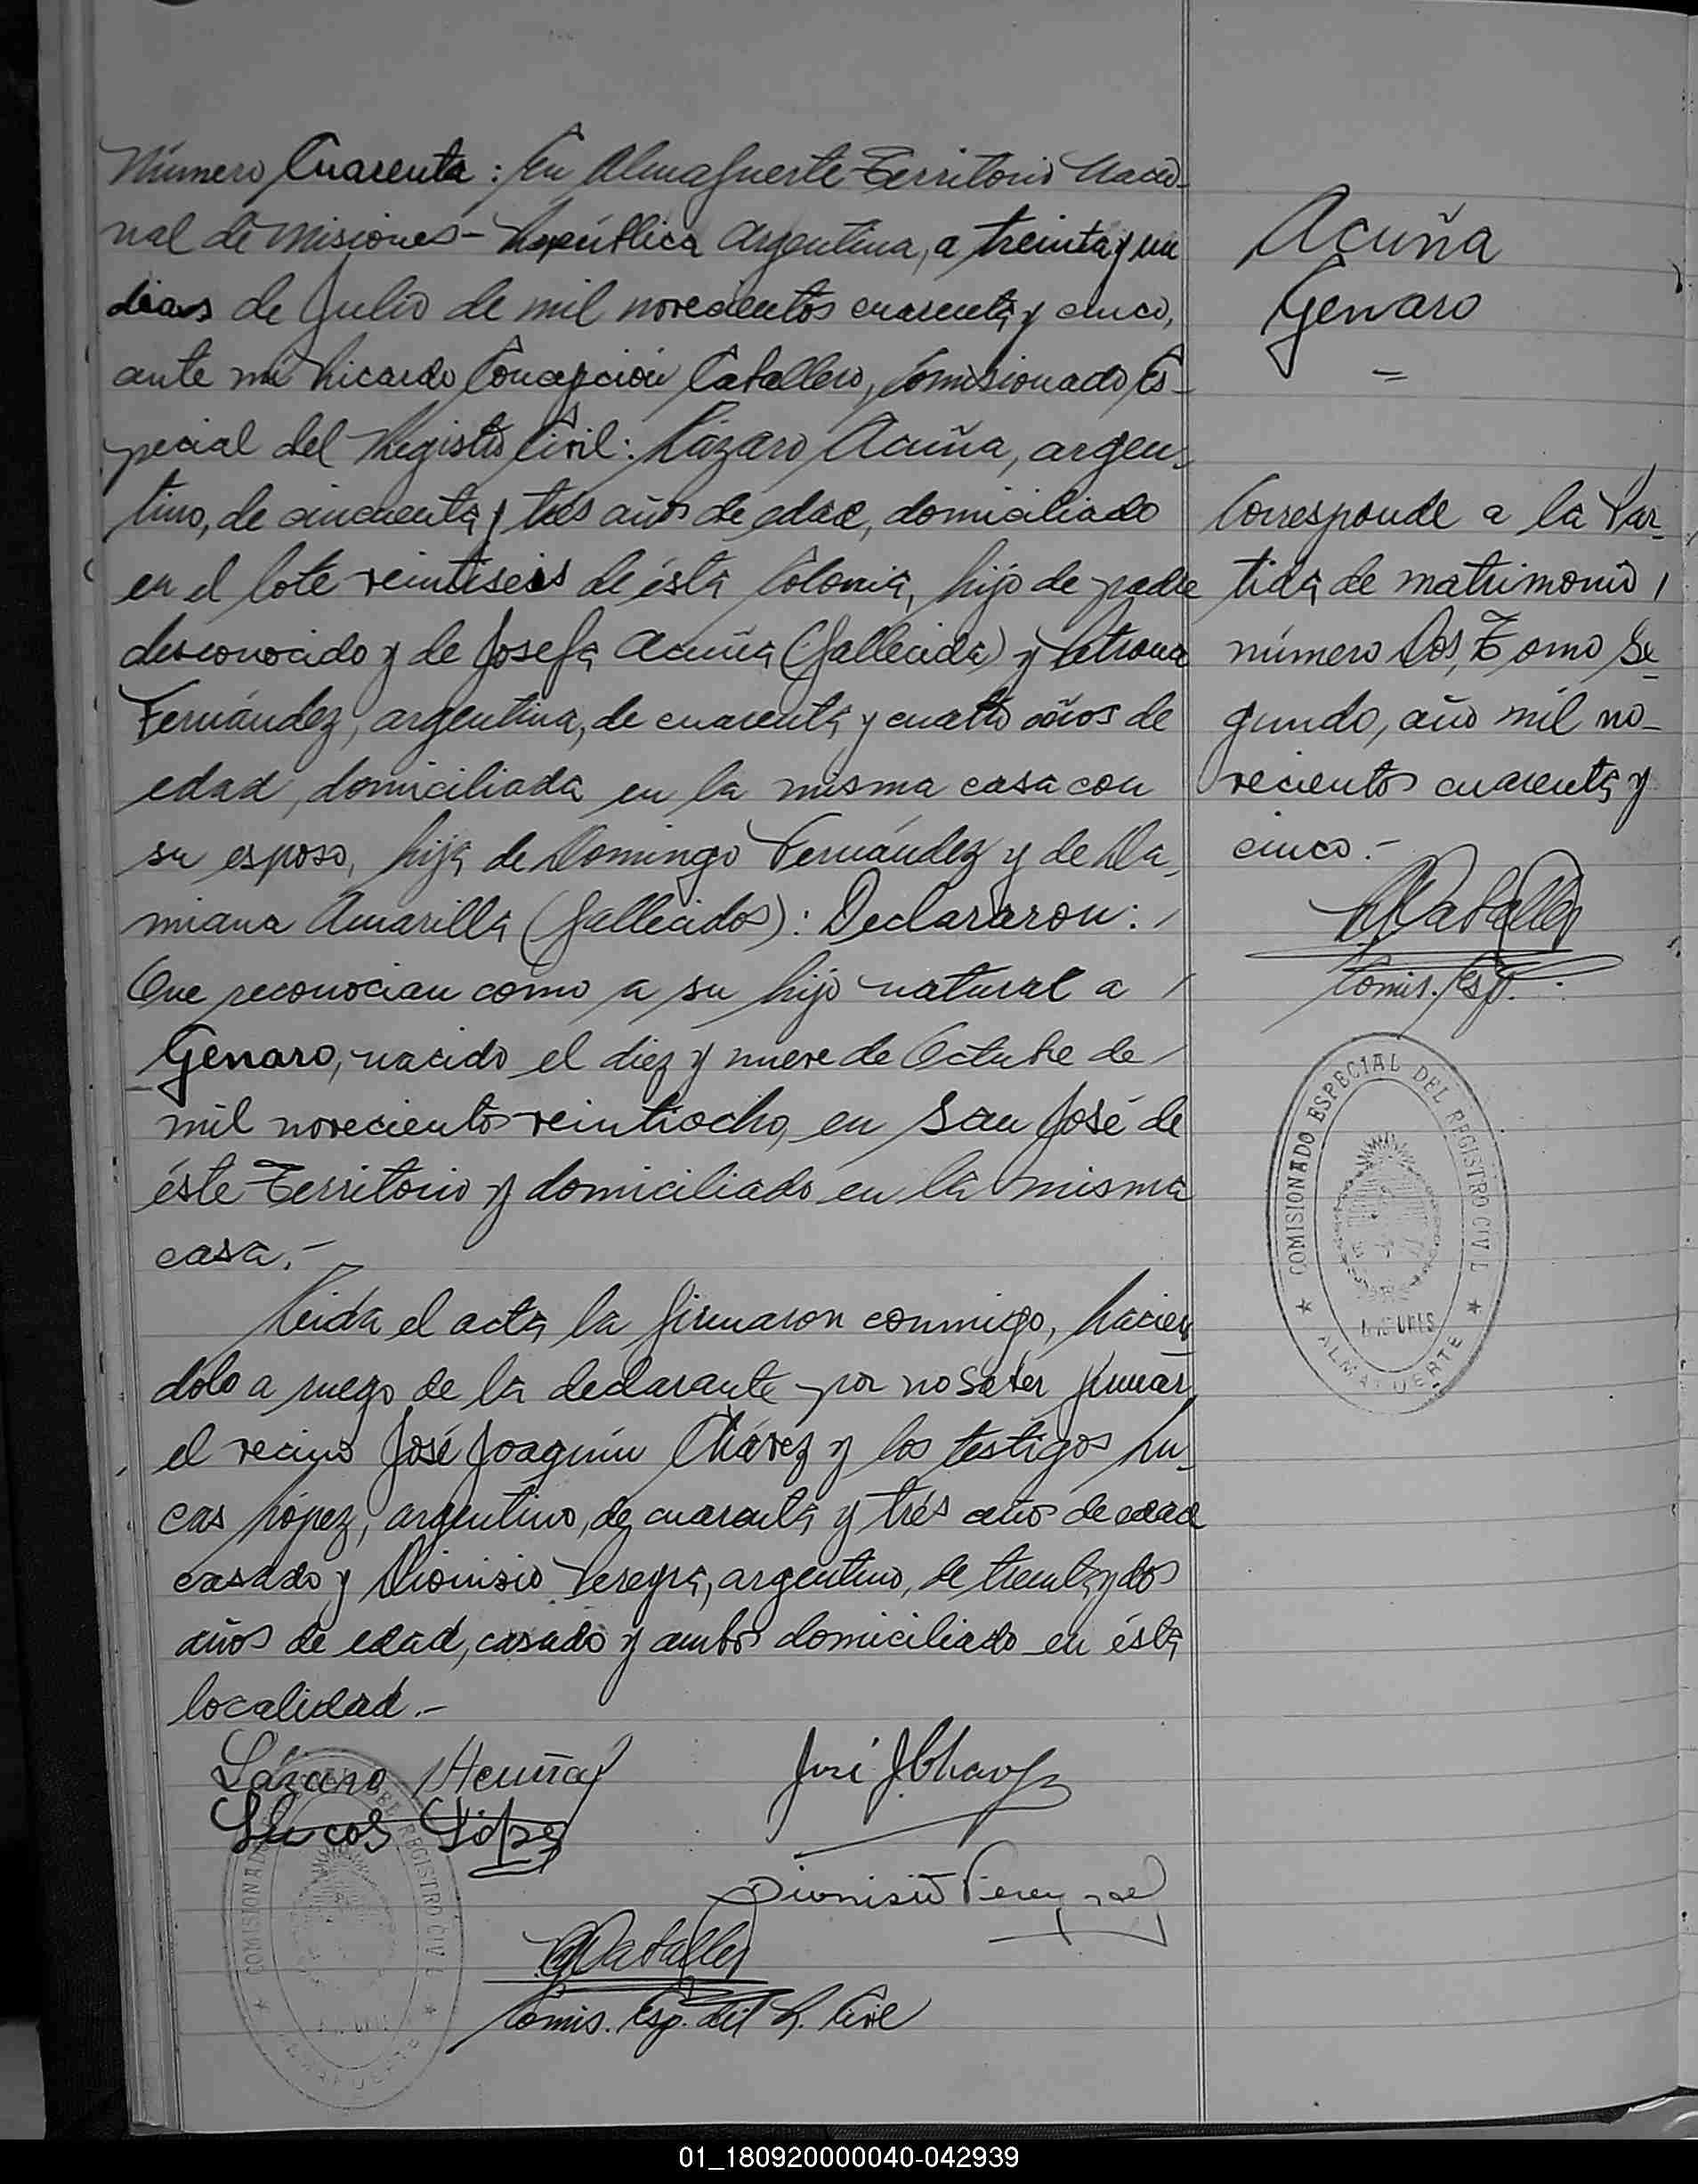 Número Cuarenta: En Almafuerte Territorio Nacio-
nal de Misiones - República Argentina, a treinta y un
dias de Julio de mil novecientos cuarenta y cinco,
ante mi Ricardo Concepción Caballero, Comisionado Es-
pecial del Registro Civil: Lázaro Acuña, argen-
tino, de cincuenta y tres años de edad, domiciliado
en el lote veintiseis de ésta Colonia, hijo de padre
desconocido y de Josefa Acuña (fallecida) y Petrona
Fernández, argentina, de cuarenta y cuatro años de
edad, domiciliada en la misma casa con
su esposo, hija de Domingo Fernández y de Da-
miana Amarilla (fallecidos): Declararon: /
Que reconocian como a su hijo natural a /
Genaro, nacido el diez y nueve de Octubre de /
mil novecientos veintiocho, en San José de
éste Territorio y domiciliado en la misma
casa.-
Leida el acta, la firmaron conmigo, hacien-
dolo a ruego de la declarante por no saber firmar,
el vecino José Joaquín Chávez y los testigos Lu-
cas López, argentino, de cuarenta y trés años de edad
casado y Dionisio Pereyra, argentino, de treinta y dos
años de edad, casado y ambos domiciliado en ésta
localidad.-
Lázaro Acuña
José J Chavez
Lucas López
Dionisio Pereyra
RCCaballero
Comis. Esp. del R. Civil
COMISIONADO ESPECIAL DEL REGISTRO CIVIL
ALMAFUERTE
Acuña
Genaro
=
Corresponde a la Par-
tida de matrimonio /
número Dos, Tomo Se-
gundo, año mil no-
vecientos cuarenta y
cinco.-
RCCaballero
Comis. Esp.
COMISIONADO ESPECIAL DEL REGISTRO CIVIL
MISIONES
ALMAFUERTE
01_180920000040-042939